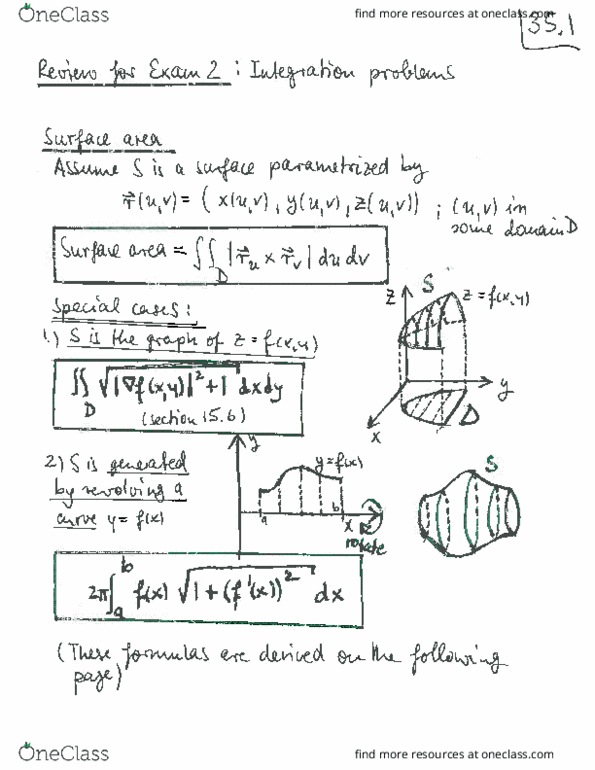 OneClass
find more resources at oneclass.com
35.1
Review for Exam 2 : Integration problems
Surface area
Assume S is a surface parametrized by
r⃗(u,v) = ( x(u,v) , y(u,v) , z(u,v)) ; (u,v) in
some domain D
Surface area = ∬_D |r⃗_u × r⃗_v| du dv
Special cases :
1.) S is the graph of z = f(x,y)
∬_D √(|∇f(x,y)|² + 1) dxdy
(section 15.6)
z S z = f(x,y)
y
D
x
2) S is generated
by revolving a
curve y = f(x)
y
y = f(x)
a b x
rotate
S
2π ∫_a^b f(x) √(1 + (f'(x))²) dx
(These formulas are derived on the following
page)
OneClass
find more resources at oneclass.com